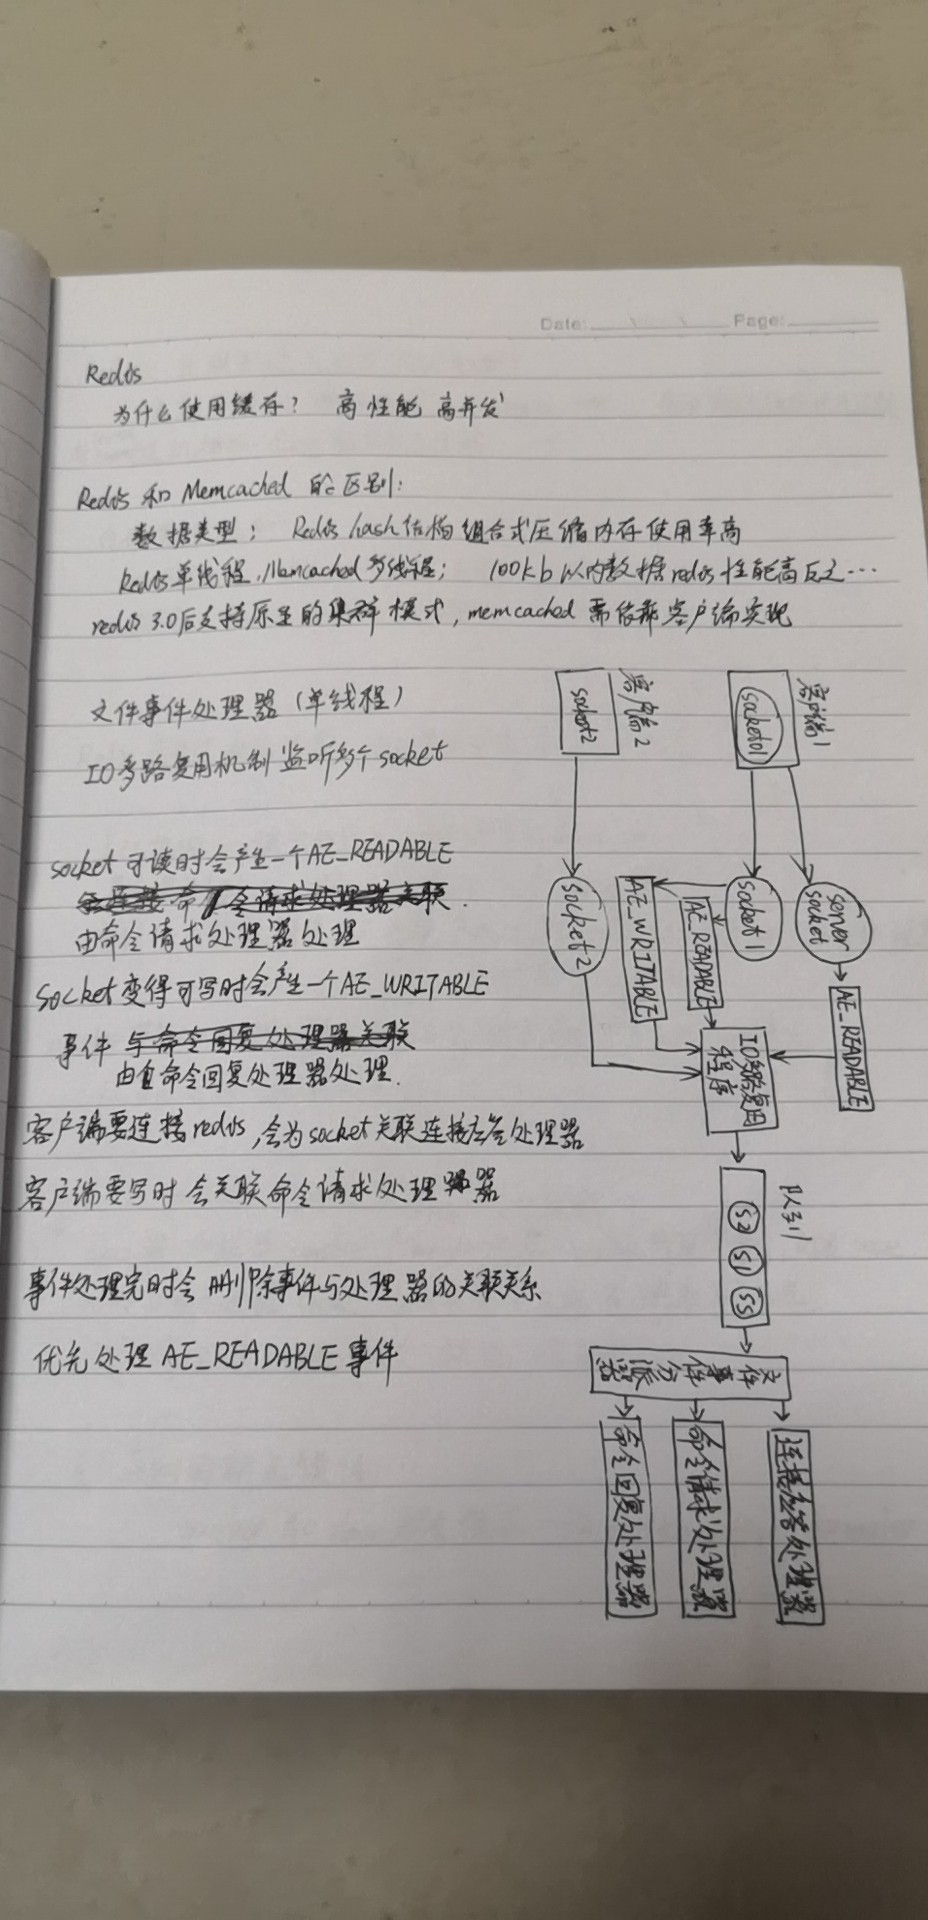 Date: Page:
Redis
为什么使用缓存? 高性能 高并发
Redis 和 Memcached 的区别:
数据类型: Redis hash结构 组合式压缩内存使用率高
Redis单线程,Memcached多线程; 100kb以内数据redis性能高反之…
redis 3.0后支持原生的集群模式,memcached 需依靠客户端实现
文件事件处理器(单线程)
IO多路复用机制 监听多个 socket
socket可读时会产生一个AE_READABLE
由命令请求处理器处理
socket变得可写时会产生一个AE_WRITABLE
事件 与命令回复处理器关联
由命令回复处理器处理.
客户端要连接redis,会为socket关联连接应答处理器
客户端要写时会关联命令请求处理器
事件处理完时会删除事件与处理器的关联关系
优先处理 AE_READABLE 事件
客户端1
socket01
客户端2
socket2
server
socket
socket1
socket2
AE_READABLE
AE_READABLE
AE_WRITABLE
IO多路复用
程序
队列
S2 S1 SS
文件事件分派器
连接应答处理器
命令请求处理器
命令回复处理器